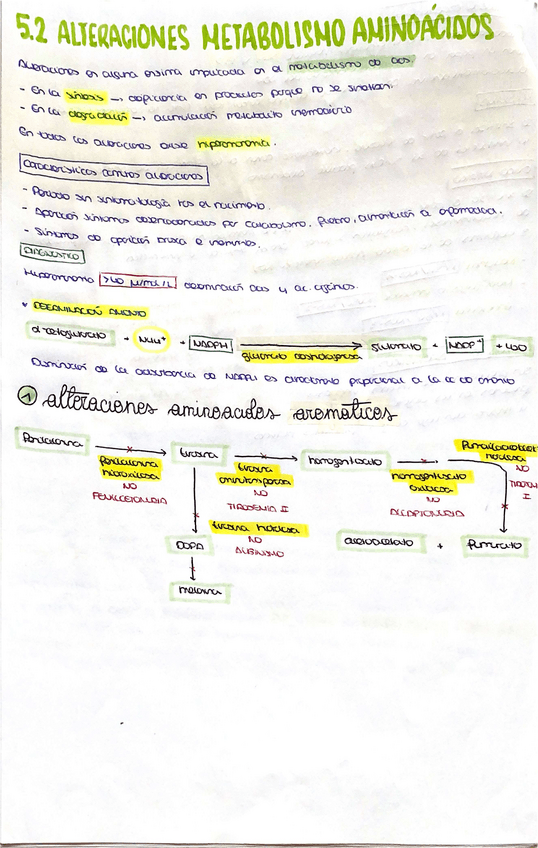 5.2 ALTERACIONES METABOLISMO AMINOÁCIDOS
Alteraciones en alguna enzima implicada en el metabolismo de aas.
- En la síntesis → deficiencia en productos porque no se sintetizan.
- En la degradación → acumulación metabolito intermediario
En todas las alteraciones existe hiperamonemia.
Características comunes alteraciones
- Periodo sin sintomatología tras el nacimiento.
- Aparición síntomas desencadenados por catabolismo. fiebre, alimentación o enfermedad.
- Síntomas de aparición brusca e
DIAGNÓSTICO
Hiperamonemia >40 μmol/L
DETERMINACIÓN AMONIO
α-cetoglutarato + NH4+ + NADPH → glutamato + NADP+ + H2O
glutamato deshidrogenasa
Disminución de la absorbancia de NADPH es directamente proporcional a la cc de amonio
① alteraciones aminoacidos aromaticos
Fenilalanina → tirosina → homogentisato →
fenilalanina hidroxilasa
NO
FENILCETONURIA
tirosina aminotransferasa
NO
TIROSINEMIA II
homogentisato oxidasa
NO
ALCAPTONURIA
NO
I
tirosina hidroxilasa
NO
ALBINISMO
DOPA
acetoacetato + fumarato
melanina